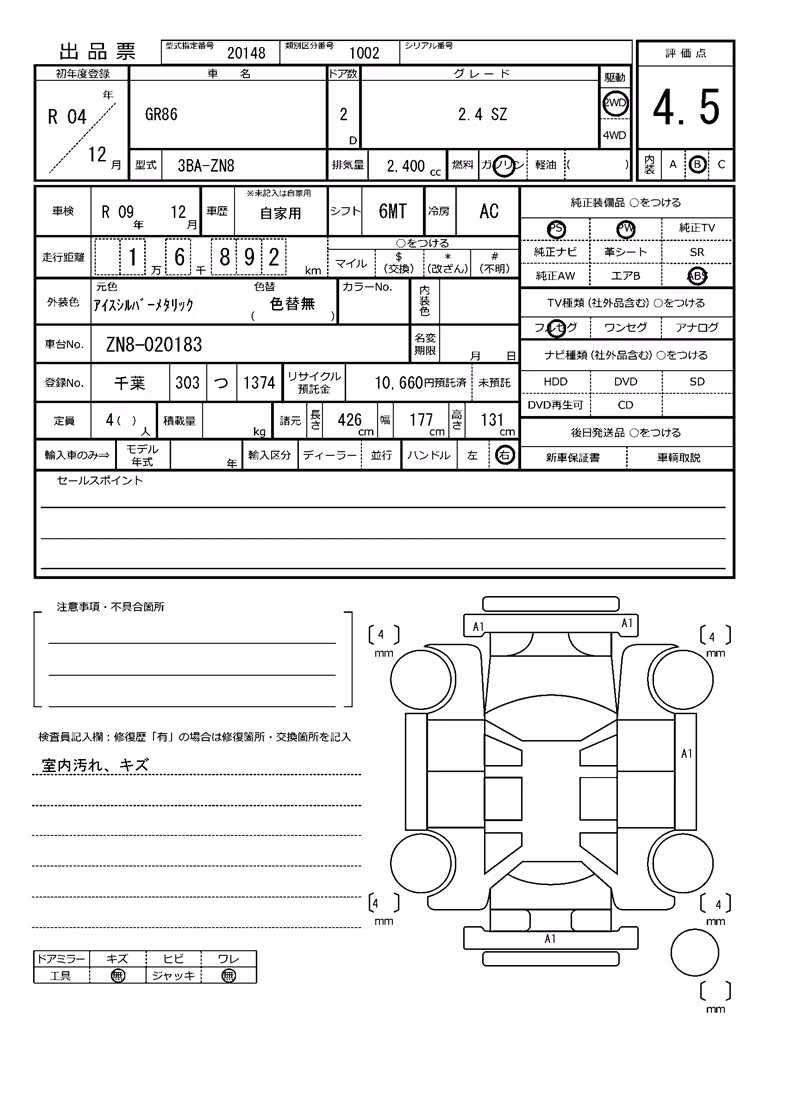 出品票 型式指定番号 20148 類別区分番号 1002 シリアル番号
評価点
4.5
内装 A B C
初年度登録 車名 ドア数 グレード 駆動
R 04 年 12 月 GR86 2 D 2.4 SZ 2WD
4WD
型式 3BA-ZN8 排気量 2,400 cc 燃料 ガソリン 軽油 ( )
車検 R 09 年 12 月 車歴 ※未記入は自家用 自家用 シフト 6MT 冷房 AC
走行距離 1 万 6 千 8 9 2 km ○をつける
マイル $ (交換) * (改ざん) # (不明)
外装色 元色 アイスシルバーメタリック 色替 ( 色替無 ) カラーNo. 内装色
車台No. ZN8-020183 名変期限 月 日
登録No. 千葉 303 つ 1374 リサイクル預託金 10,660円預託済 未預託
定員 4 ( ) 人 積載量 kg 諸元 長さ 426 cm 幅 177 cm 高さ 131 cm
輸入車のみ⇒ モデル年式 年 輸入区分 ディーラー 並行 ハンドル 左 右
純正装備品 ○をつける
PS PW 純正TV
純正ナビ 革シート SR
純正AW エアB ABS
TV種類(社外品含む)○をつける
フルセグ ワンセグ アナログ
ナビ種類(社外品含む)○をつける
HDD DVD SD
DVD再生可 CD
後日発送品 ○をつける
新車保証書 車輌取説
セールスポイント
注意事項・不具合箇所
検査員記入欄:修復歴「有」の場合は修復箇所・交換箇所を記入
室内汚れ、キズ
ドアミラー キズ ヒビ ワレ
工具 無 ジャッキ 無
4 mm
A1
A1
4 mm
A1
4 mm
A1
4 mm
mm